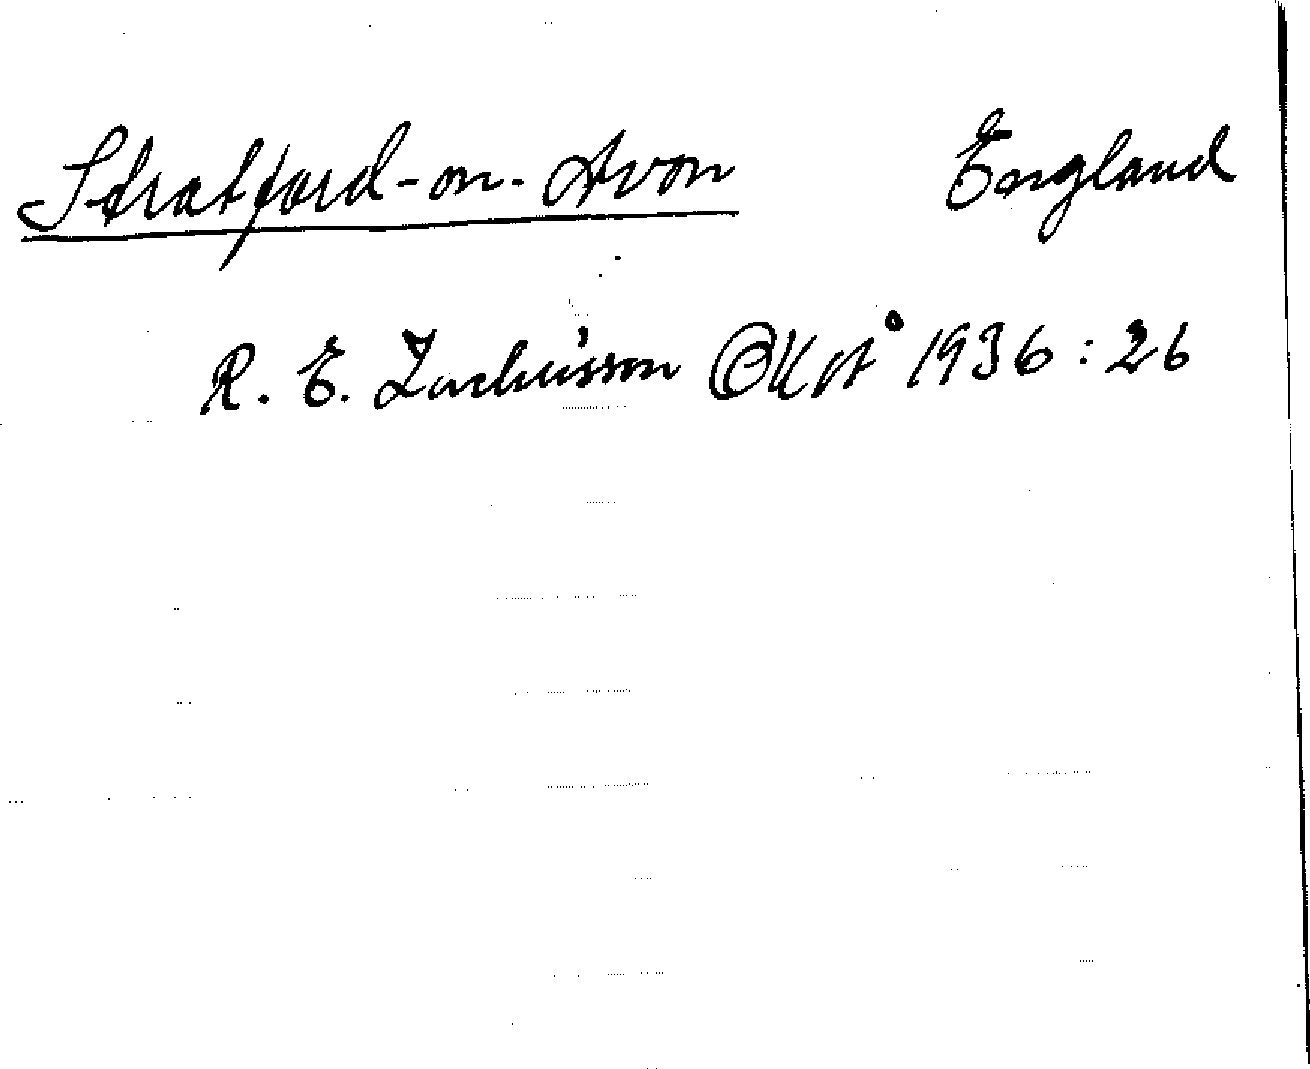 Stratford-on-Avon England
R. E. Zachrisson 1936:26